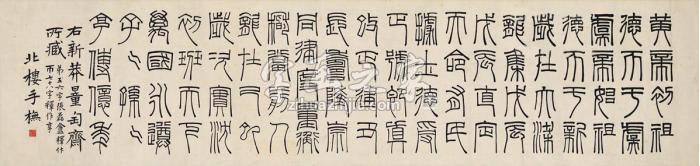 黄帝初祖
德帀于虞
虞帝始祖
德帀于新
歲在大梁
龍集戊辰
戊辰直定
天命有民
據土德受
正號即真
改正建丑
長壽隆崇
同律度量衡
稽當前人
龍在己巳
歲次實沈
初班天下
萬國永遵
子子孫孫
亨傳億年
右新莽量匋齋
所藏
弟五六字張 釋什
七十八字釋作享
北樓手橅